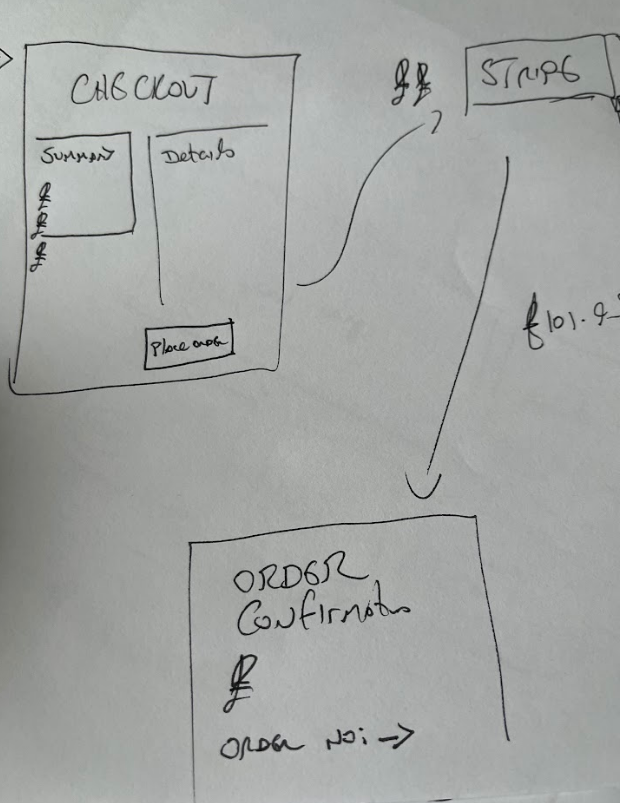 CHECKOUT
SUMMARY
£
£
£
Details
Place order
££
STRIPE
£101.9
ORDER
Confirmation
£
ORDER NO: →